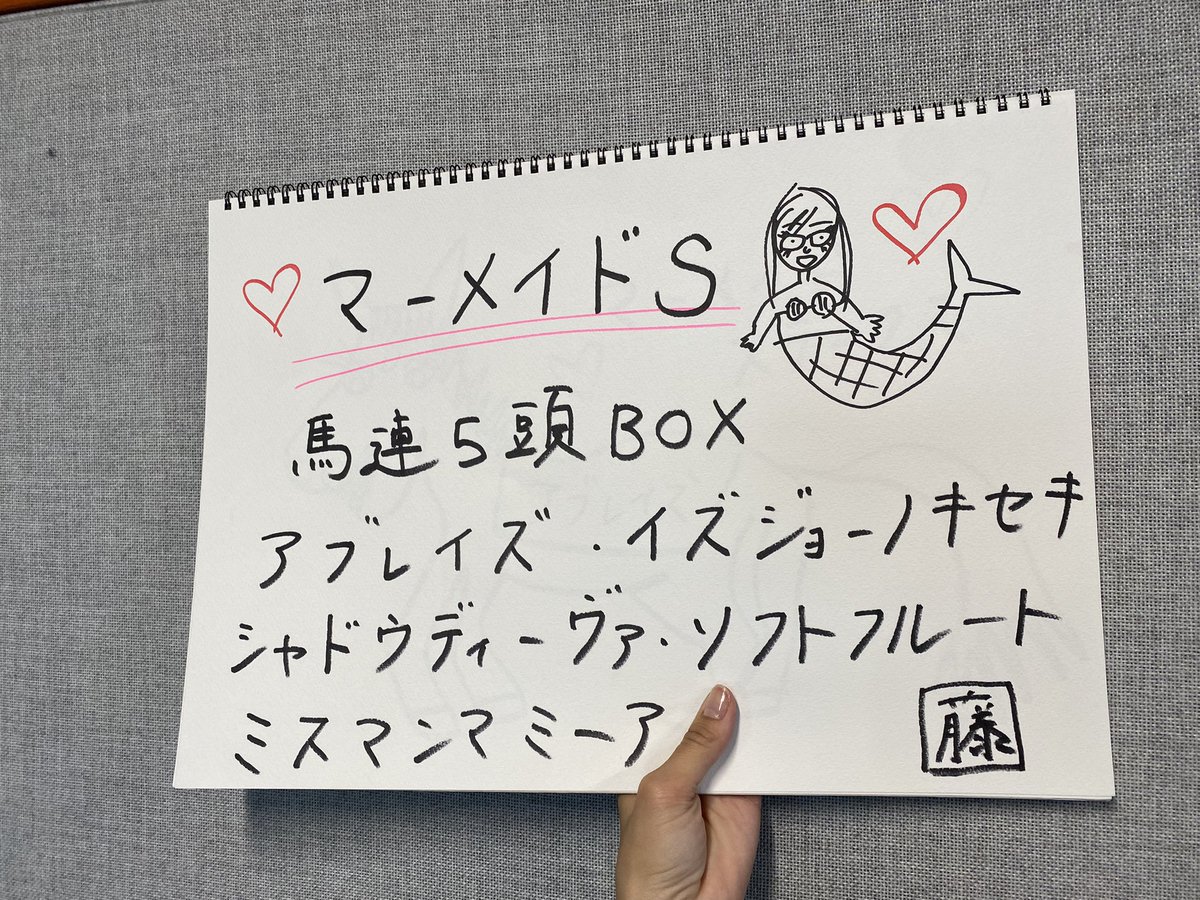 マーメイドS
馬連5頭BOX
アブレイズ・イズジョーノキセキ
シャドウディーヴァ・ソフトフルート
ミスマンマミーア
藤